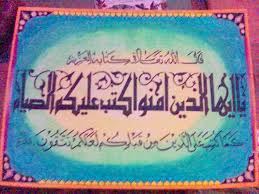 قال الله تعالى في كتابه العزيز
يا أيها الذين آمنوا كتب عليكم الصيام
كما كتب على الذين من قبلكم لعلكم تتقون